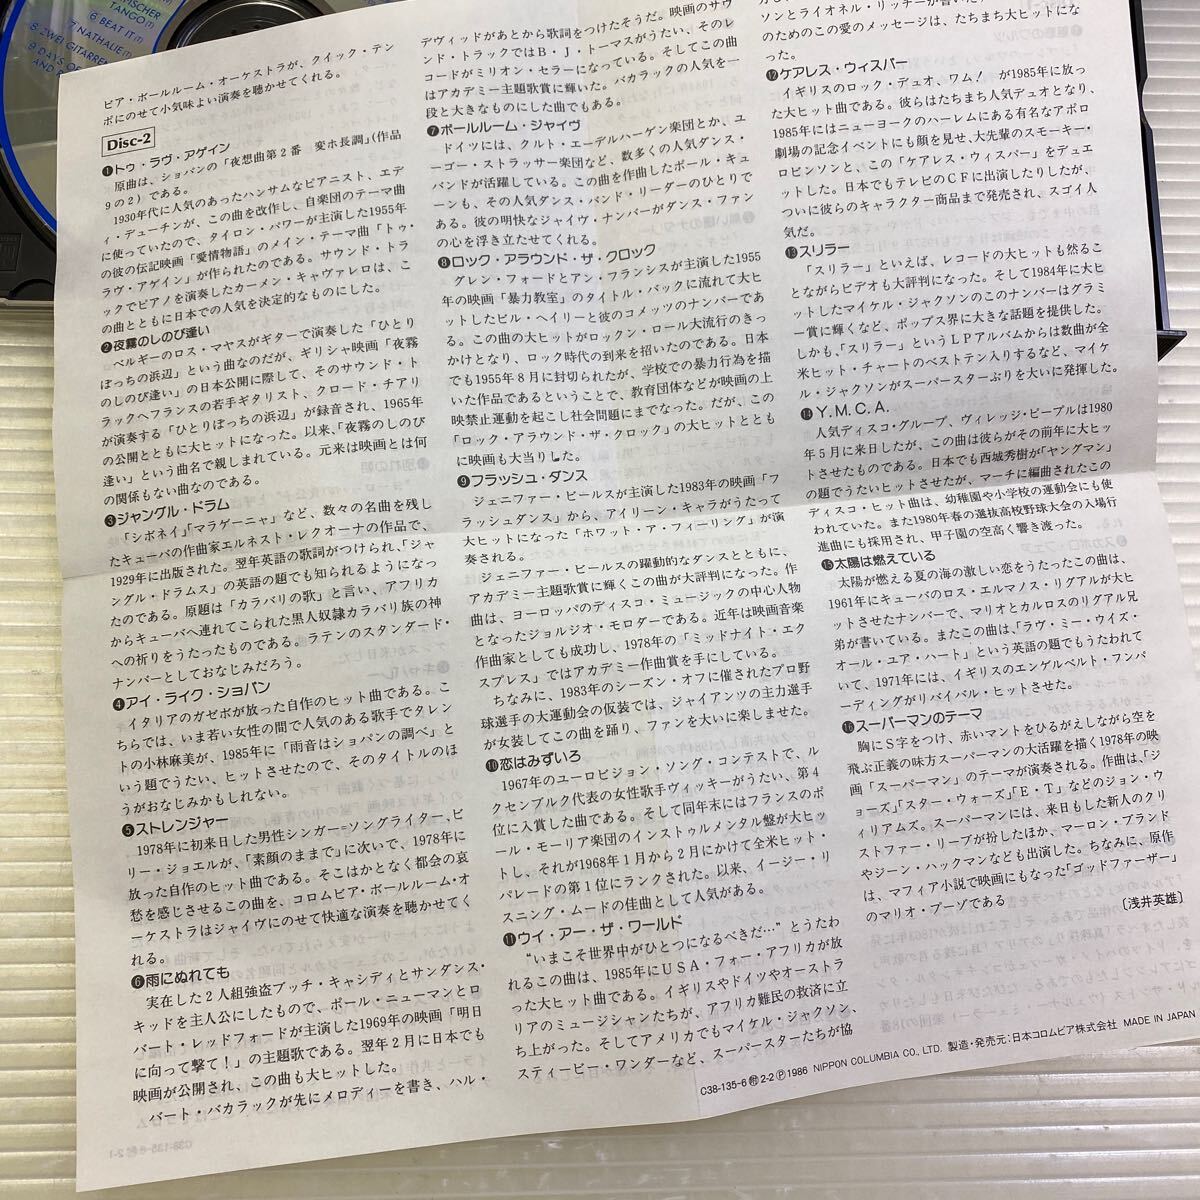 FISCHER
TANGO(T)
6 BEAT IT(T)
7 NATHALIE(T)
8 ZWEI GITARREN
9 DAYS OF
ピア・ボールルーム・オーケストラが、クイック・テン
ポにのせて小気味よい演奏を聴かせてくれる。
Disc-2
❶トゥ・ラヴ・アゲイン
原曲は、ショパンの「夜想曲第2番 変ホ長調」(作品
9の2)である。
1930年代に人気のあったハンサムなピアニスト、エデ
ィ・デューチンが、この曲を改作し、自楽団のテーマ曲
に使っていたので、タイロン・パワーが主演した1955年
の彼の伝記映画「愛情物語」のメイン・テーマ曲「トゥ・
ラヴ・アゲイン」が作られたのである。サウンド・トラ
ックでピアノを演奏したカーメン・キャヴァレロは、こ
の曲とともに日本での人気を決定的なものにした。
❷夜霧のしのび逢い
ベルギーのロス・マヤスがギターで演奏した「ひとり
ぼっちの浜辺」という曲なのだが、ギリシャ映画「夜霧
のしのび逢い」の日本公開に際して、そのサウンド・ト
ラックへフランスの若手ギタリスト、クロード・チアリ
が演奏する「ひとりぼっちの浜辺」が録音され、1965年
の公開とともに大ヒットになった。以来、「夜霧のしのび
逢い」という曲名で親しまれている。元来は映画とは何
の関係もない曲なのである。
❸ジャングル・ドラム
「シボネイ」「マラゲーニャ」など、数々の名曲を残し
たキューバの作曲家エルネスト・レクオーナの作品で、
1929年に出版された。翌年英語の歌詞がつけられ、「ジャ
ングル・ドラムス」の英語の題でも知られるようになっ
たのである。原題は「カラバリの歌」と言い、アフリカ
からキューバへ連れてこられた黒人奴隷カラバリ族の神
への祈りをうたったものである。ラテンのスタンダード・
ナンバーとしておなじみだろう。
❹アイ・ライク・ショパン
イタリアのガゼボが放った自作のヒット曲である。こ
ちらでは、いま若い女性の間で人気のある歌手でタレン
トの小林麻美が、1985年に「雨音はショパンの調べ」と
いう題でうたい、ヒットさせたので、そのタイトルのほ
うがおなじみかもしれない。
❺ストレンジャー
1978年に初来日した男性シンガー=ソングライター、ビ
リー・ジョエルが、「素顔のままで」に次いで、1978年に
放った自作のヒット曲である。そこはかとなく都会の哀
愁を感じさせるこの曲を、コロムビア・ボールルーム・オ
ーケストラはジャイヴにのせて快適な演奏を聴かせてく
れる。
❻雨にぬれても
実在した2人組強盗ブッチ・キャシディとサンダンス・
キッドを主人公にしたもので、ポール・ニューマンとロ
バート・レッドフォードが主演した1969年の映画「明日
に向って撃て!」の主題歌である。翌年2月に日本でも
映画が公開され、この曲も大ヒットした。
バート・バカラックが先にメロディーを書き、ハル・
デヴィッドがあとから歌詞をつけたそうだ。映画のサウ
ンド・トラックではB・J・トーマスがうたい、そのレ
コードがミリオン・セラーになっている。そしてこの曲
はアカデミー主題歌賞に輝いた。バカラックの人気を一
段と大きなものにした曲でもある。
❼ボールルーム・ジャイヴ
ドイツには、クルト・エーデルハーゲン楽団とか、ユ
ーゴー・ストラッサー楽団など、数多くの人気ダンス・
バンドが活躍している。この曲を作曲したポール・キュ
ーンも、その人気ダンス・バンド・リーダーのひとりで
ある。彼の明快なジャイヴ・ナンバーがダンス・ファン
の心を浮き立たせてくれる。
❽ロック・アラウンド・ザ・クロック
グレン・フォードとアン・フランシスが主演した1955
年の映画「暴力教室」のタイトル・バックに流れて大ヒ
ットしたビル・ヘイリーと彼のコメッツのナンバーであ
る。この曲の大ヒットがロックン・ロール大流行のきっ
かけとなり、ロック時代の到来を招いたのである。日本
でも1955年8月に封切られたが、学校での暴力行為を描
いた作品であるということで、教育団体などが映画の上
映禁止運動を起こし社会問題にまでなった。だが、この
「ロック・アラウンド・ザ・クロック」の大ヒットととも
に映画も大当りした。
❾フラッシュ・ダンス
ジェニファー・ビールスが主演した1983年の映画「フ
ラッシュダンス」から、アイリーン・キャラがうたって
大ヒットになった「ホワット・ア・フィーリング」が演
奏される。
ジェニファー・ビールスの躍動的なダンスとともに、
アカデミー主題歌賞に輝くこの曲が大評判になった。作
曲は、ヨーロッパのディスコ・ミュージックの中心人物
となったジョルジオ・モロダーである。近年は映画音楽
作曲家としても成功し、1978年の「ミッドナイト・エク
スプレス」ではアカデミー作曲賞を手にしている。
ちなみに、1983年のシーズン・オフに催されたプロ野
球選手の大運動会の仮装では、ジャイアンツの主力選手
が女装してこの曲を踊り、ファンを大いに楽しませた。
❿恋はみずいろ
1967年のユーロビジョン・ソング・コンテストで、ル
クセンブルク代表の女性歌手ヴィッキーがうたい、第4
位に入賞した曲である。そして同年末にはフランスのポ
ール・モーリア楽団のインストゥルメンタル盤が大ヒッ
トし、それが1968年1月から2月にかけて全米ヒット・
パレードの第1位にランクされた。以来、イージー・リ
スニング・ムードの佳曲として人気がある。
⓫ウイ・アー・ザ・ワールド
“いまこそ世界中がひとつになるべきだ…”とうたわ
れるこの曲は、1985年にUSA・フォー・アフリカが放
った大ヒット曲である。イギリスやドイツやオーストラ
リアのミュージシャンたちが、アフリカ難民の救済に立
ち上がった。そしてアメリカでもマイケル・ジャクソン、
スティービー・ワンダーなど、スーパースターたちが協
ソンとライオネル・リッチーが書いた
のためのこの愛のメッセージは、たちまち大ヒットにな
った。
⓬ケアレス・ウィスパー
イギリスのロック・デュオ、ワム! が1985年に放っ
た大ヒット曲である。彼らはたちまち人気デュオとなり、
1985年にはニューヨークのハーレムにある有名なアポロ
劇場の記念イベントにも顔を見せ、大先輩のスモーキー・
ロビンソンと、この「ケアレス・ウィスパー」をデュエ
ットした。日本でもテレビのCFに出演したりしたが、
ついに彼らのキャラクター商品まで発売され、スゴイ人
気だ。
⓭スリラー
「スリラー」といえば、レコードの大ヒットも然るこ
とながらビデオも大評判になった。そして1984年に大ヒ
ットしたマイケル・ジャクソンのこのナンバーはグラミ
ー賞に輝くなど、ポップス界に大きな話題を提供した。
しかも、「スリラー」というLPアルバムからは数曲が全
米ヒット・チャートのベストテン入りするなど、マイケ
ル・ジャクソンがスーパースターぶりを大いに発揮した。
⓮Y.M.C.A.
人気ディスコ・グループ、ヴィレッジ・ピープルは1980
年5月に来日したが、この曲は彼らがその前年に大ヒッ
トさせたものである。日本でも西城秀樹が「ヤングマン」
の題でうたいヒットさせたが、マーチに編曲されたこの
ディスコ・ヒット曲は、幼稚園や小学校の運動会にも使
われていた。また1980年春の選抜高校野球大会の入場行
進曲にも採用され、甲子園の空高く響き渡った。
⓯太陽は燃えている
太陽が燃える夏の海の激しい恋をうたったこの曲は、
1961年にキューバのロス・エルマノス・リグアルが大ヒ
ットさせたナンバーで、マリオとカルロスのリグアル兄
弟が書いている。またこの曲は、「ラヴ・ミー・ウイズ・
オール・ユア・ハート」という英語の題でもうたわれて
いて、1971年には、イギリスのエンゲルベルト・フンパ
ーディングがリバイバル・ヒットさせた。
⓰スーパーマンのテーマ
胸にS字をつけ、赤いマントをひるがえしながら空を
飛ぶ正義の味方スーパーマンの大活躍を描く1978年の映
画「スーパーマン」のテーマが演奏される。作曲は、「ジ
ョーズ」「スター・ウォーズ」「E・T」などのジョン・ウ
ィリアムズ。スーパーマンには、来日もした新人のクリ
ストファー・リーブが扮したほか、マーロン・ブランド
やジーン・ハックマンなども出演した。ちなみに、原作
は、マフィア小説で映画にもなった「ゴッドファーザー」
のマリオ・プーゾである
〔浅井英雄〕
C38-135-6 ㈹ 2-2 Ⓟ 1986 NIPPON COLUMBIA CO., LTD. 製造・発売元:日本コロムビア株式会社 MADE IN JAPAN